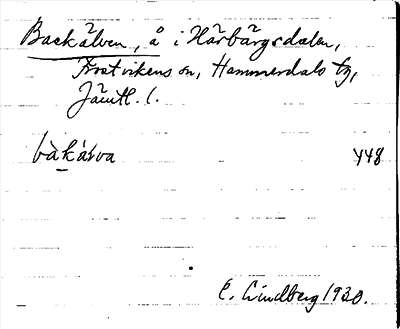 Backälven, å i Härbärgsdalen,
Frostvikens sn, Hammerdals tg,
Jämtl. l.
bàkä́ɩva 448
C. Lindberg 1930.